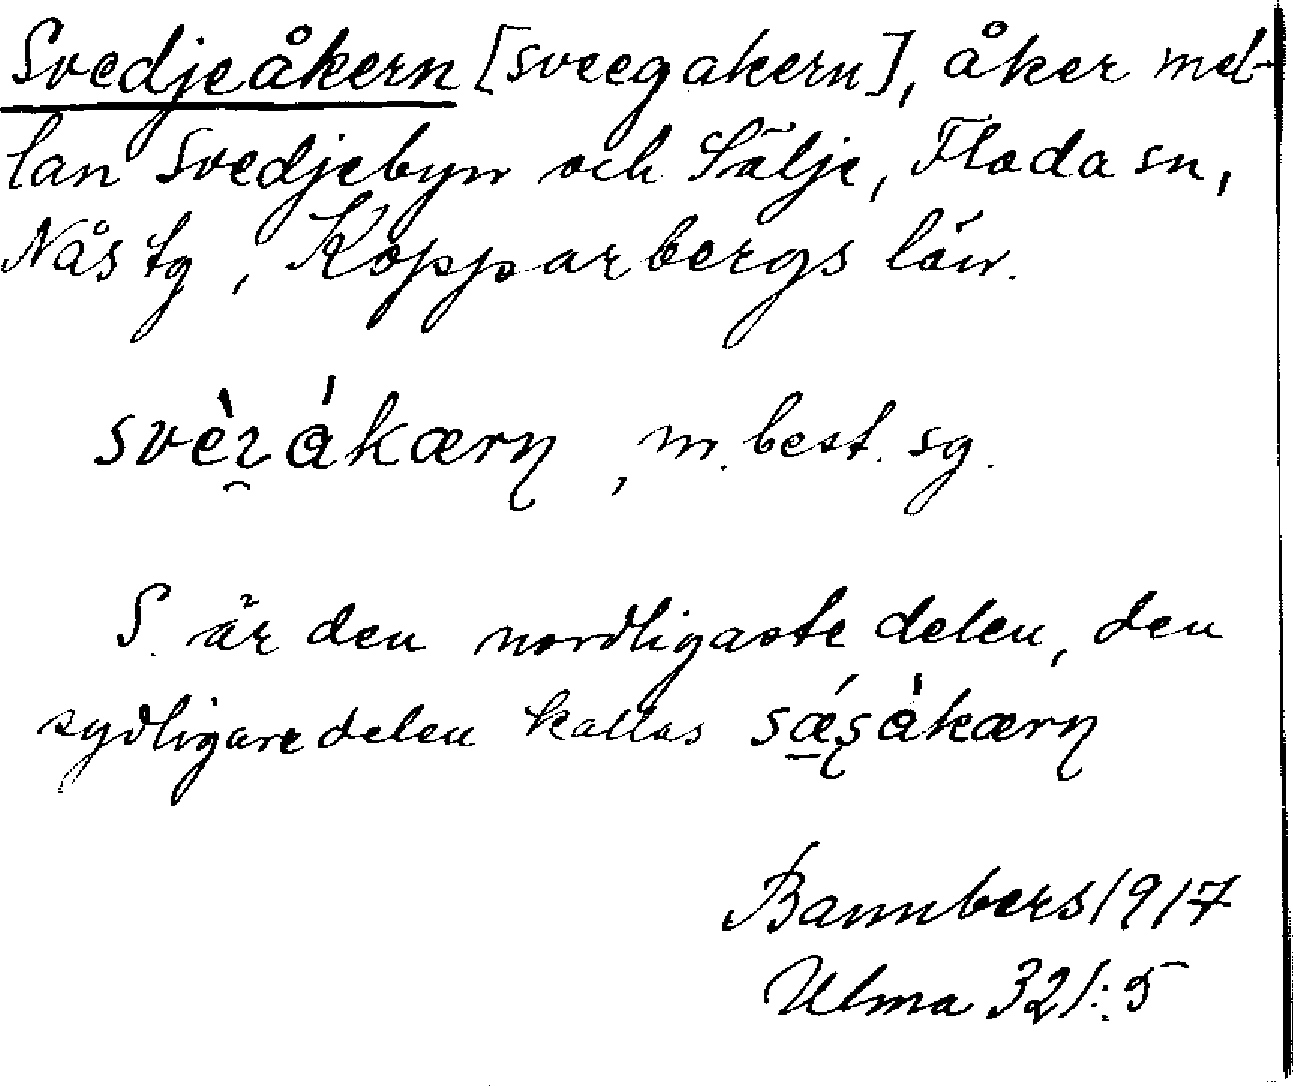 Svedjeåkern [sveegakern], åker mel-
lan Svedjebyn och Sälje, Floda sn,
Nås tg, Kopparbergs län.
svèɿákærn̨, m. best. sg.
S. är den nordligaste delen, den
sydligare delen kallas sǽ̱ʂàkærn̨
Bannbers 1917
Ulma 321:5